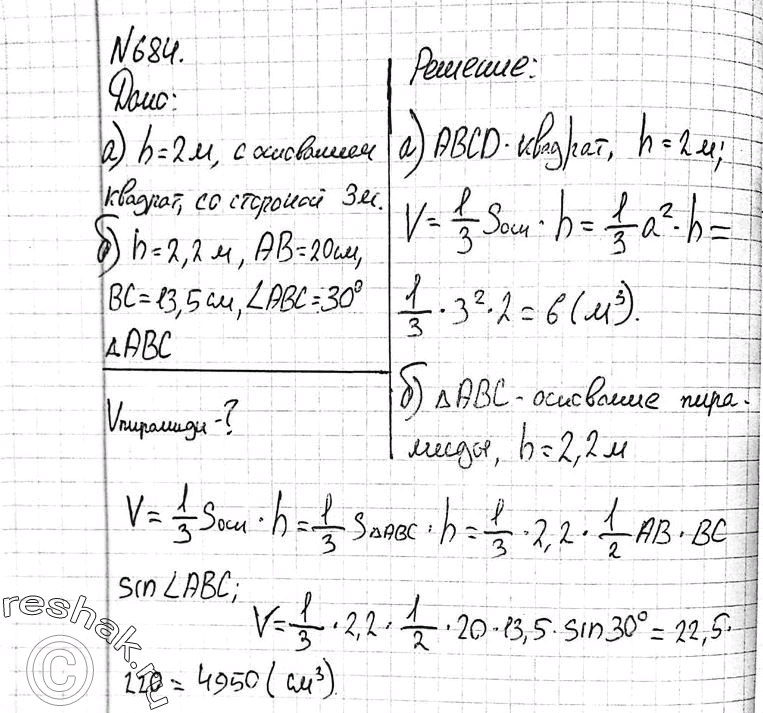 N684.
Дано:
а) h=2м, с основанием
квадрат, со стороной 3м.
б) h=2,2м, AB=20см,
BC=13,5см, ∠ABC=30°
△ABC
Vпирамиди-?
Решение:
а) ABCD-квадрат, h=2м;
V=1/3 Sосн·h=1/3 a²·h=
1/3·3²·2=6(м³).
б) △ABC-основание пира-
миды, h=2,2м
V=1/3 Sосн·h=1/3 S△ABC·h=1/3·2,2·1/2 AB·BC
sin∠ABC;
V=1/3·2,2·1/2·20·13,5·sin30°=22,5·
220=4950(см³).
reshak.ru
©